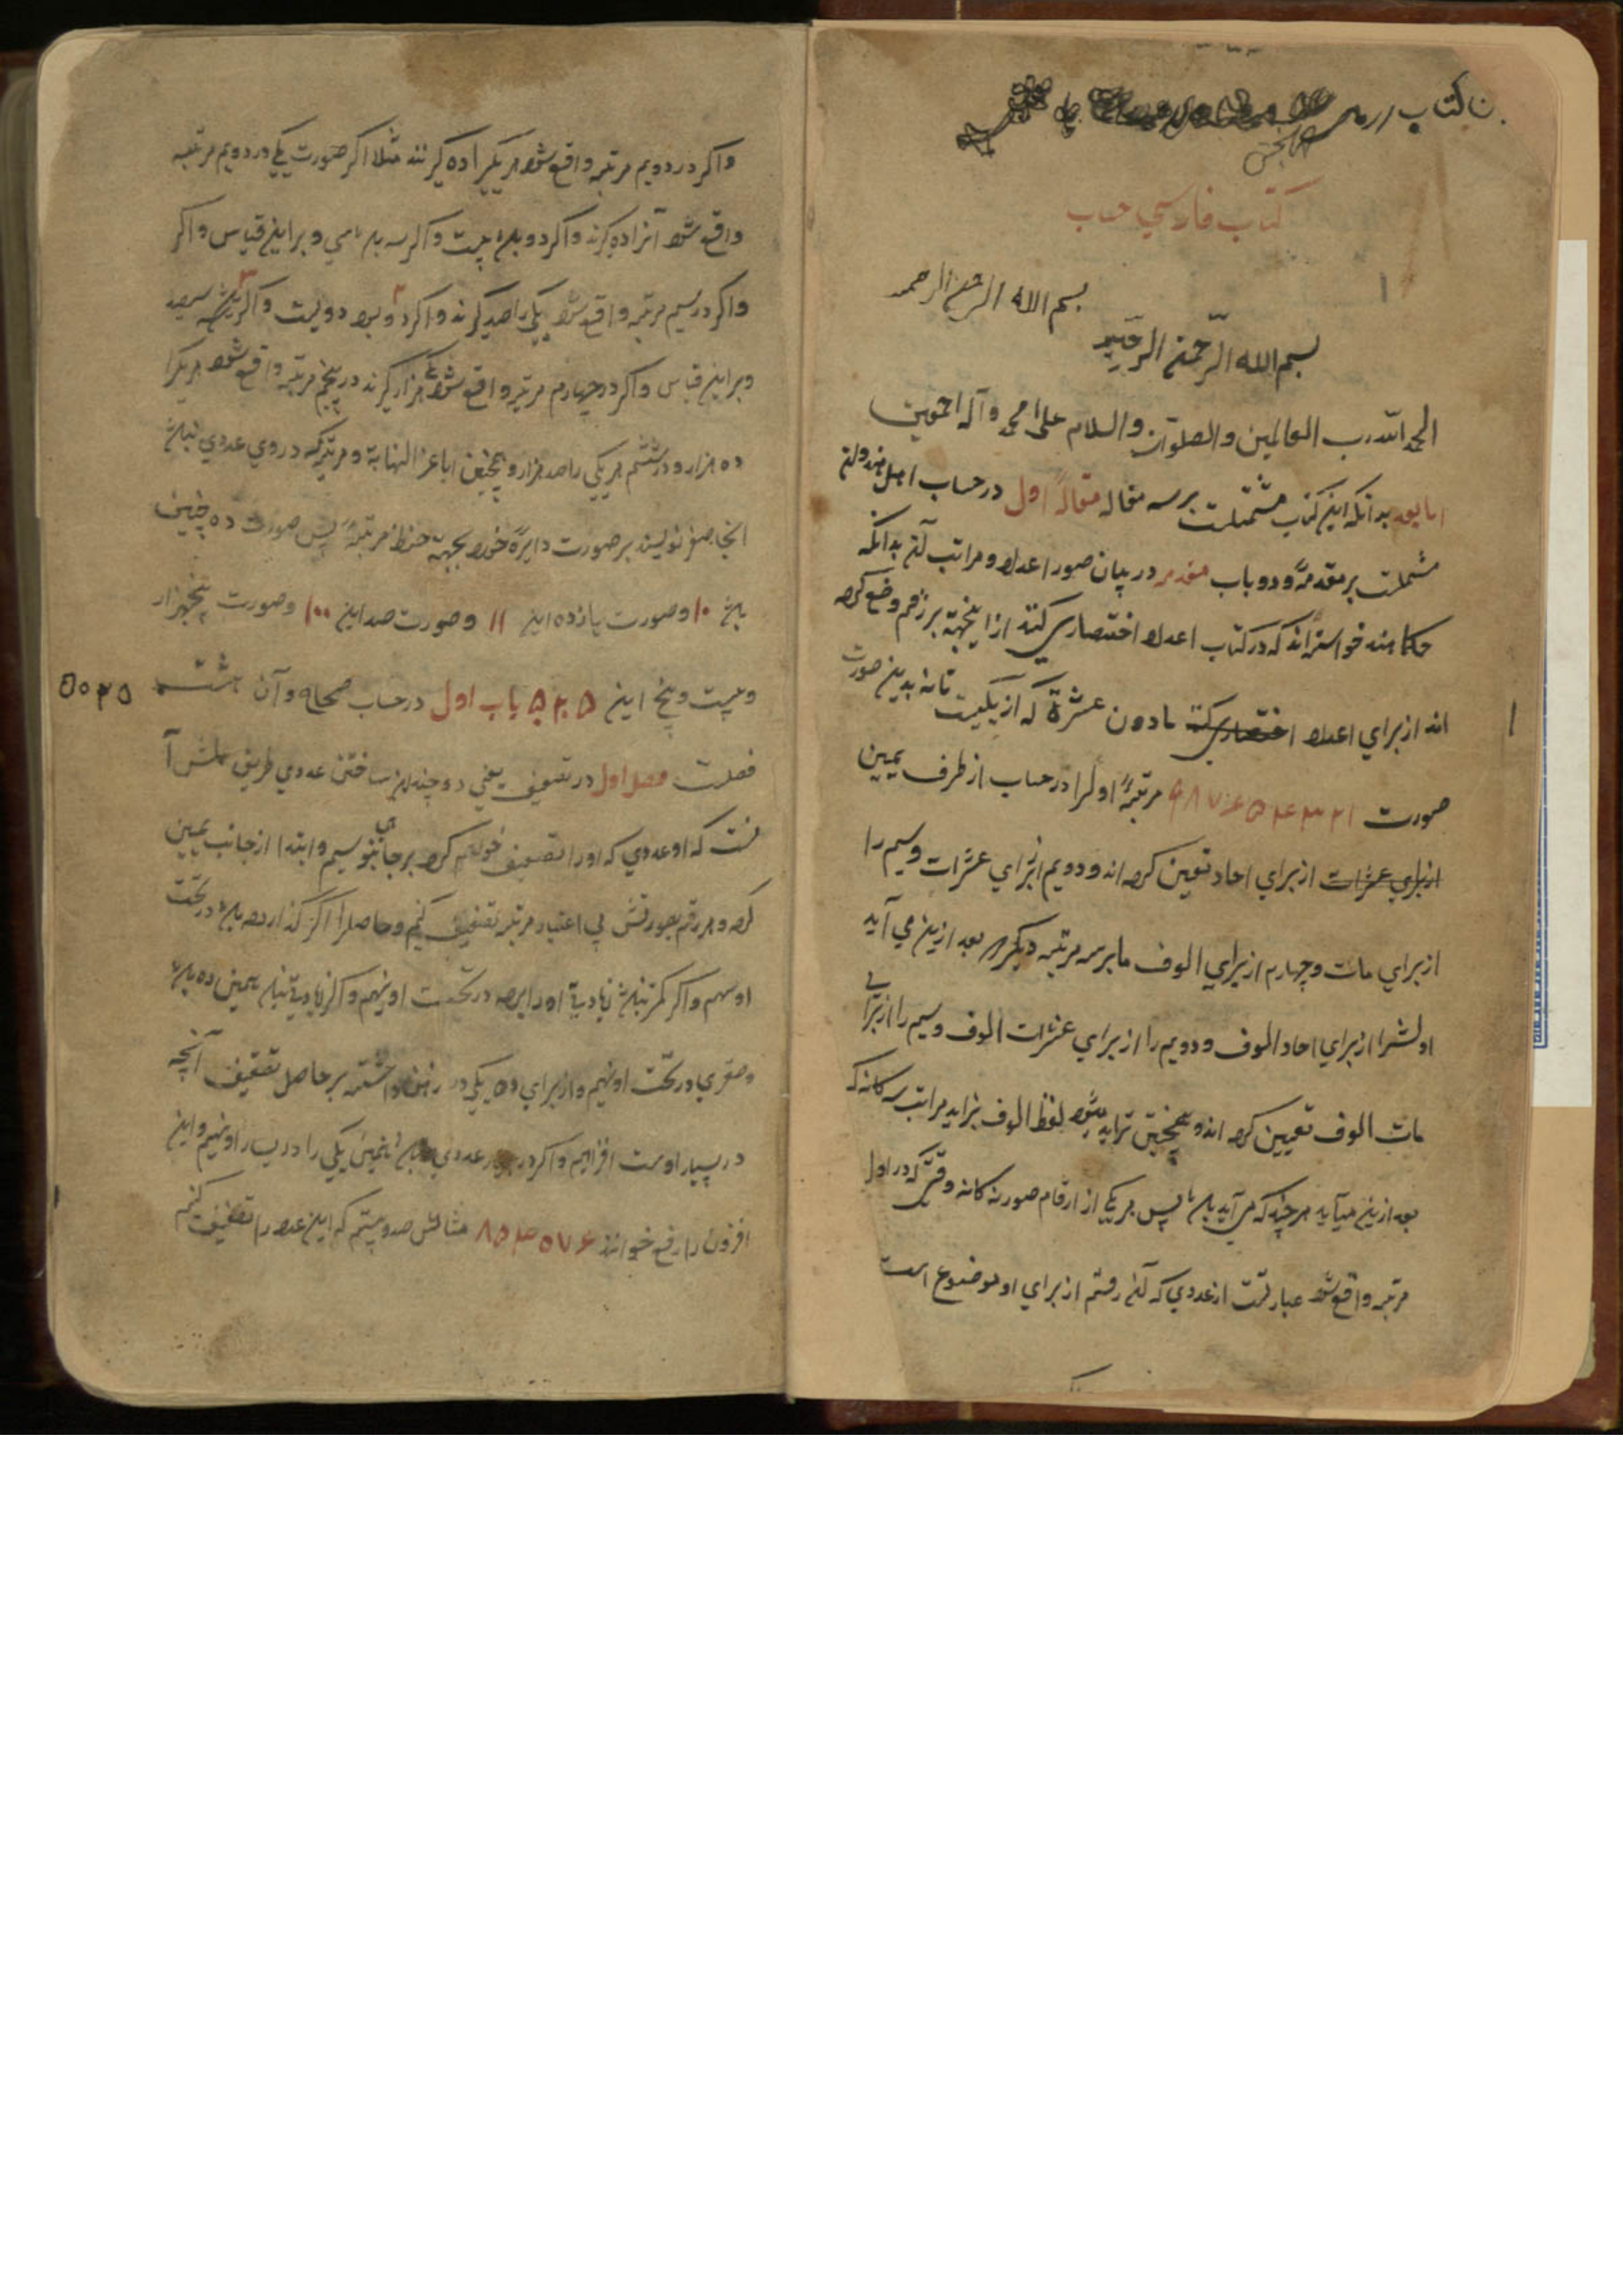 کتاب
کتاب فارسی حساب
بسم الله الرحمن الرحیم
بسم الله الرحمن الرحیم
الحمد لله رب العالمین والصلوة والسلام علی محمد وآله اجمعین
اما بعد بدانکه این کتاب مشتملست برسه مقاله مقالهٔ اول در حساب اهل هند و آن
مشتملست بر مقدمهٔ و دو باب مقدمه در بیان صور اعداد و مراتب آن بدانکه
حکما هند خواسته‌اند که در کتاب اعداد اختصاری کنند از اینجهة نه رقم وضع کرده
اند از برای اعداد مادون عشرة که از یکیست تا نه بدین صورت
صورت ۱ ۲ ۳ ۴ ۵ ۶ ۷ ۸ ۹ مرتبهٔ اول را در حساب از طرف یمین
از برای عشرات از برای احاد تعین کرده اند و دویم از برای عشرات و سیم را
از برای مات و چهارم از برای الوف ما هر سه مرتبه دیگر که بعد ازین می آید
اولش را از برای احاد الوف و دویم را از برای عشرات الوف و سیم را از برای
مات الوف تعیین کرده اند و همچنین تزاید شود لفظ الوف بتزاید مراتب سه کانه که
بعد ازین میآید هر چند که می آید پس هر یکی از ارقام صور نه کانه وقتی که در اول
مرتبه واقع شود عبارتست از عددی که آن رقم از برای او موضوع است
واکر در دویم مرتبه واقع شود هر یکی را ده کیرند مثلا اکر صورت یکی در دویم مرتبه
واقع شود آنرا ده کیرند واکر دو باشد بیست واکر سه باشد سی و براین قیاس واکر
واکر در سیم مرتبه واقع شود یکی را صد کیرند واکر دو بود دویست واکر سه سیصد
وبراین قیاس واکر در چهارم مرتبه واقع شود هزار کیرند در پنجم مرتبه واقع شود هر یکرا
ده هزار و در ششم هر یکی را صد هزار و همچنین الی غیر النهایة و مرتبه که در وی عددی نباشد
انجا صفر نویسند بر صورت دایرهٔ خورد بجهة حفظ مرتبه پس صورت ده چنین
باشد ۱۰ وصورت یازده این ۱۱ وصورت صد این ۱۰۰ وصورت پنجهزار
وبیست وپنج این ۵۰۲۵ باب اول در حساب صحاح و آن
۵۰۲۵
فصلست فصل اول در تضعیف یعنی دو چندان ساختن عددی طریق عملش آ
نست که او عددی که اورا تضعیف خواهیم کرد بر جایی بنویسیم وابتدا از جانب یمین
کرده وهر رقم بصورتش بی اعتبار مرتبه تضعیف کنیم وحاصل را اکر کمتر از ده باشد در تحت
او نهیم واکر
وصفری در تحت او نهیم واز برای ده یکی در ذهن داشته بر حاصل تضعیف آنچه
در یسار اوست افزاییم واکر در یسار عددی نباشد همین یکی را در یسار او نهیم واین
افزودن را رفع خوانند مثالش خواستیم که این عدد را تضعیف کنیم